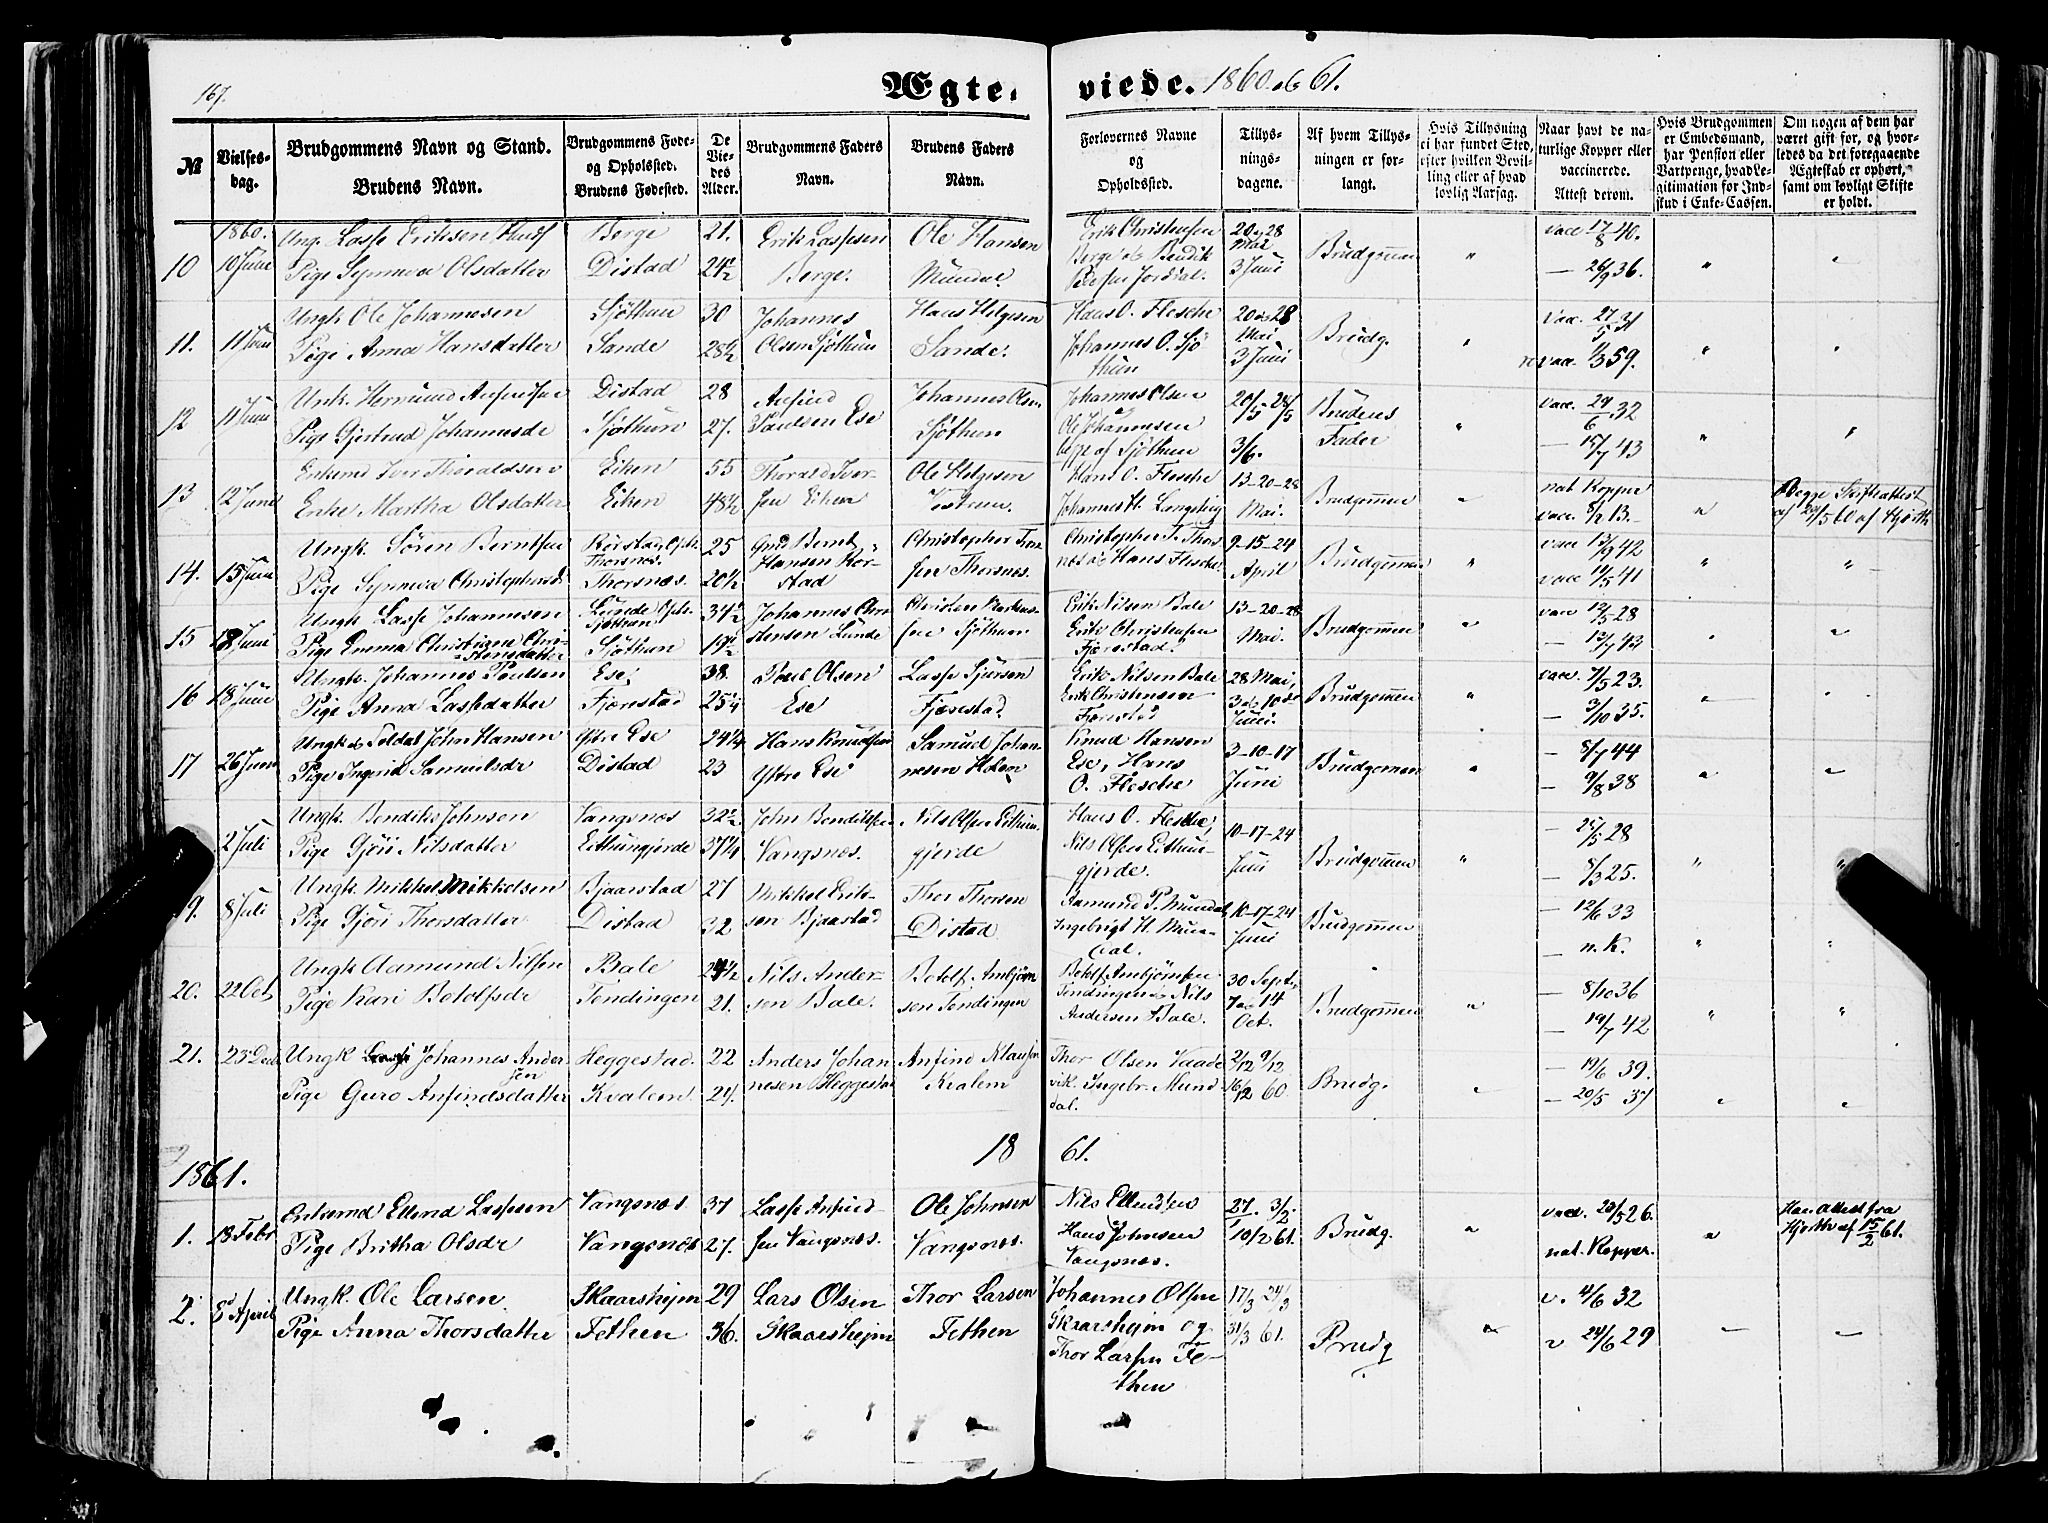 167.
Ægte-
viede. 1860 og 61.
No
Vielses-
dag.
Brudgommens Navn og Stand.
Brudens Navn.
Brudgommens Føde-
og Opholdssted.
Brudens Fødested.
De
Vie-
des
Alder.
Brudgommens Faders
Navn.
Brudens Faders
Navn.
Forlovernes Navne
og
Opholdssted.
Tillys-
nings-
dagene.
Af hvem Tillys-
ningen er for-
langt.
Hvis Tillysning
ei har fundet Sted,
efter hvilken Bevil-
ling eller af hvad
lovlig Aarsag.
Naar havt de na-
turlige Kopper eller
vaccinerede.
Attest derom.
Hvis Brudgommen
er Embedsmand,
har Pension eller
Vartpenge, hvad Le-
gitimation for Ind-
skud i Enke-Cassen.
Om nogen af dem har
været gift før, og hvor-
ledes da det foregaaende
Ægteskab er ophørt,
samt om lovligt Skifte
er holdt.
1860.
10 10 Juni
Ung. Lasse Eriksen
Pige Synneva Olsdatter
Berge
Distad
21.
24 1/2
Erik Lassesen
Berge.
Ole Hansen
Mundal.
Erik Christensen
Berge og Bendik
Pedersen Jordal.
20 og 28
Mai
3 Juni
Brudgommen
"
vacc 17/8 40.
— 26/9 36.
"
"
11. 11 Juni
Ungk Ole Johannesen
Pige Anna Hansdatter
Sjøthun
Sande
30
28 1/2
Johannes
Olsen Sjøthun
Hans Helgesen
Sande.
Hans O. Flesche
Johannes O. Sjø
thun
20 og 28
Mai
3 Juni
Brudg.
"
Vac. 27/5 31
revac. 1/3 59.
"
"
12 11 Juni
Unk. Hermund Anfindsen
Pige Gjertrud Johannesdr
Distad
Sjøthun
28
27.
Anfind
Paulsen Ese
Johannes Olsen
Sjøthun
Johannes Olsen
Ole Johannesen
begge af Sjøthun
20/5 - 28/5
3/6.
Brudens
Fader
"
vac. 29/6 32
— 15/7 43
"
"
13 12 Juni
Enkemd Iver Thoraldsen
Enke Martha Olsdatter
Eiken
Eiken
55
48 1/2
Thorald Iver-
sen Eiken
Ole Helgesen
Hans O. Flesche
Johannes H.
13-20-28
Mai.
Brudgommen
"
nat Kopper
vacc. 8/2 13.
"
Begge Skifteattest
af 24/5 60 af Hjorth
14. 15 Juni
Ungk. Sören Berntsen
Pige Synneva Christophersd.
Rörstad, Oph.
Thorsnæs.
Thorsnæs.
25
20 1/2
Gmd Bernt
Hansen Rör-
stad
Christopher Thor
sen Thorsnæs.
Christopher T. Thors
næs og Hans Flesche.
9-15-24
April
Brudgommen
"
vacc 13/9 42
vacc 14/5 41
"
"
15 18 Juni
Ungk Lasse Johannesen
Pige Emma Christiane Chri-
stensdatter
Lunde Oph.
Sjøthun
Sjøthun
34 1/2
19 1/2
Johannes Chri
stensen Lunde
Christen
sen Sjøthun
Erik Nilsen Bale
Erik Christensen
Fjærestad.
13-20-28
Mai.
Brudgommen
"
vacc 12/5 28
— 13/7 43
"
"
16 18 Juni
Ungk. Johannes Poulsen
Pige Anna Lassedatter
Ese,
Fjærestad
38.
25 1/4
Poul Olsen
Ese
Lasse Sjursen
Fjærestad.
Erik Nilsen Bale
Erik Christensen
Fjærestad
28 Mai,
3 og 10de
Juni.
Brudgommen
"
vacc. 7/5 23.
— 3/10 35.
"
"
17 26 Juni
Ungk og Soldat John Hansen
Pige Ingerid Samuelsdr
Ytre Ese
Distad
24 1/4
23
Hans Knudsen
Ytre Ese
Samuel Johan
nesen Holen
Knud Hansen
Ese, Hans
O. Flesche
3-10-17
Juni
Brudgommen
"
— 8/7 44
— 9/8 38
"
"
2 Juli
Ungk. Bendik Johnsen
Pige Gjöri Nilsdatter
Vangsnæs
Eithungjerde
32 1/2
37 1/4
John Bendiksen
Vangsnæs.
Nils Olsen Eithun-
gjerde
Hans O. Flesche,
Nils Olsen Eithun-
gjerde.
10-17-24
Juni
Brudgommen
"
— 25/5 28
— 8/3 25.
"
"
19. 8 Juli
Ungk. Mikkel Mikkelsen
Pige Gjöri Thorsdatter
Bjaarstad
Distad
27
32
Mikkel Erik-
sen Bjaastad
Thor Thorsen
Distad
Samund P. Mundal,
Ingebrigt H. Mun-
dal.
10-17-24
Juni
Brudgommen
— 12/6 33
n. K.
"
"
20. 22 Oct
Ungk Aamund Nilsen
Pige Kari Botolfsdr
Bale
Tendingen
24 1/2
21.
Nils Ander-
sen Bale.
Botolf Ambjörn
sen Tendingen
Botolf Ambjörnsen
Tendingen og Nils
Andersen Bale.
30 Sept,
7 og 14
Oct.
Brudgommen
"
— 8/10 36
— 19/7 42
"
"
21. 23 Dec
Ungk Johannes Ander
sen
Pige Guro Anfindsdatter
Heggestad.
Kvalem
22
24.
Anders Johan
nesen Heggestad
Anfind Klausen
Kvalem
Thor Olsen Vaade
vik. Ingebr. Mund
dal.
2/12 9/12
16/12 60.
Brudg.
"
— 19/6 39.
— 20/5 37
"
"
1861.
18 61.
1. 18 Febr
Enkemd Ellend Lassesen
Pige Britha Olsdr
Vangsnæs
Vangsnæs
37
27.
Lasse Anfind-
sen Vangsnæs.
Ole Johnsen
Vangsnæs.
Nils Ellendsen
Hans Johnsen
Vangsnæs.
27/1 3/2.
10/2 61.
Brudg.
"
vacc. 20/5 26.
nat. Kopper.
"
Han attest fra
Hjorth af 15/2 61.
2. 8d April
Ungk. Ole Larsen
Pige Anna Thorsdatter
Skaarshejm
Fethen
29
36.
Lars Olsen
Skaarshejm
Thor Larsen
Fethen
Johannes Olsen
Skaarshejm og
Thor Larsen Fe-
then
17/3 24/3
31/3 61.
Brudg
"
v. 4/6 32
v 24/6 29
—
—